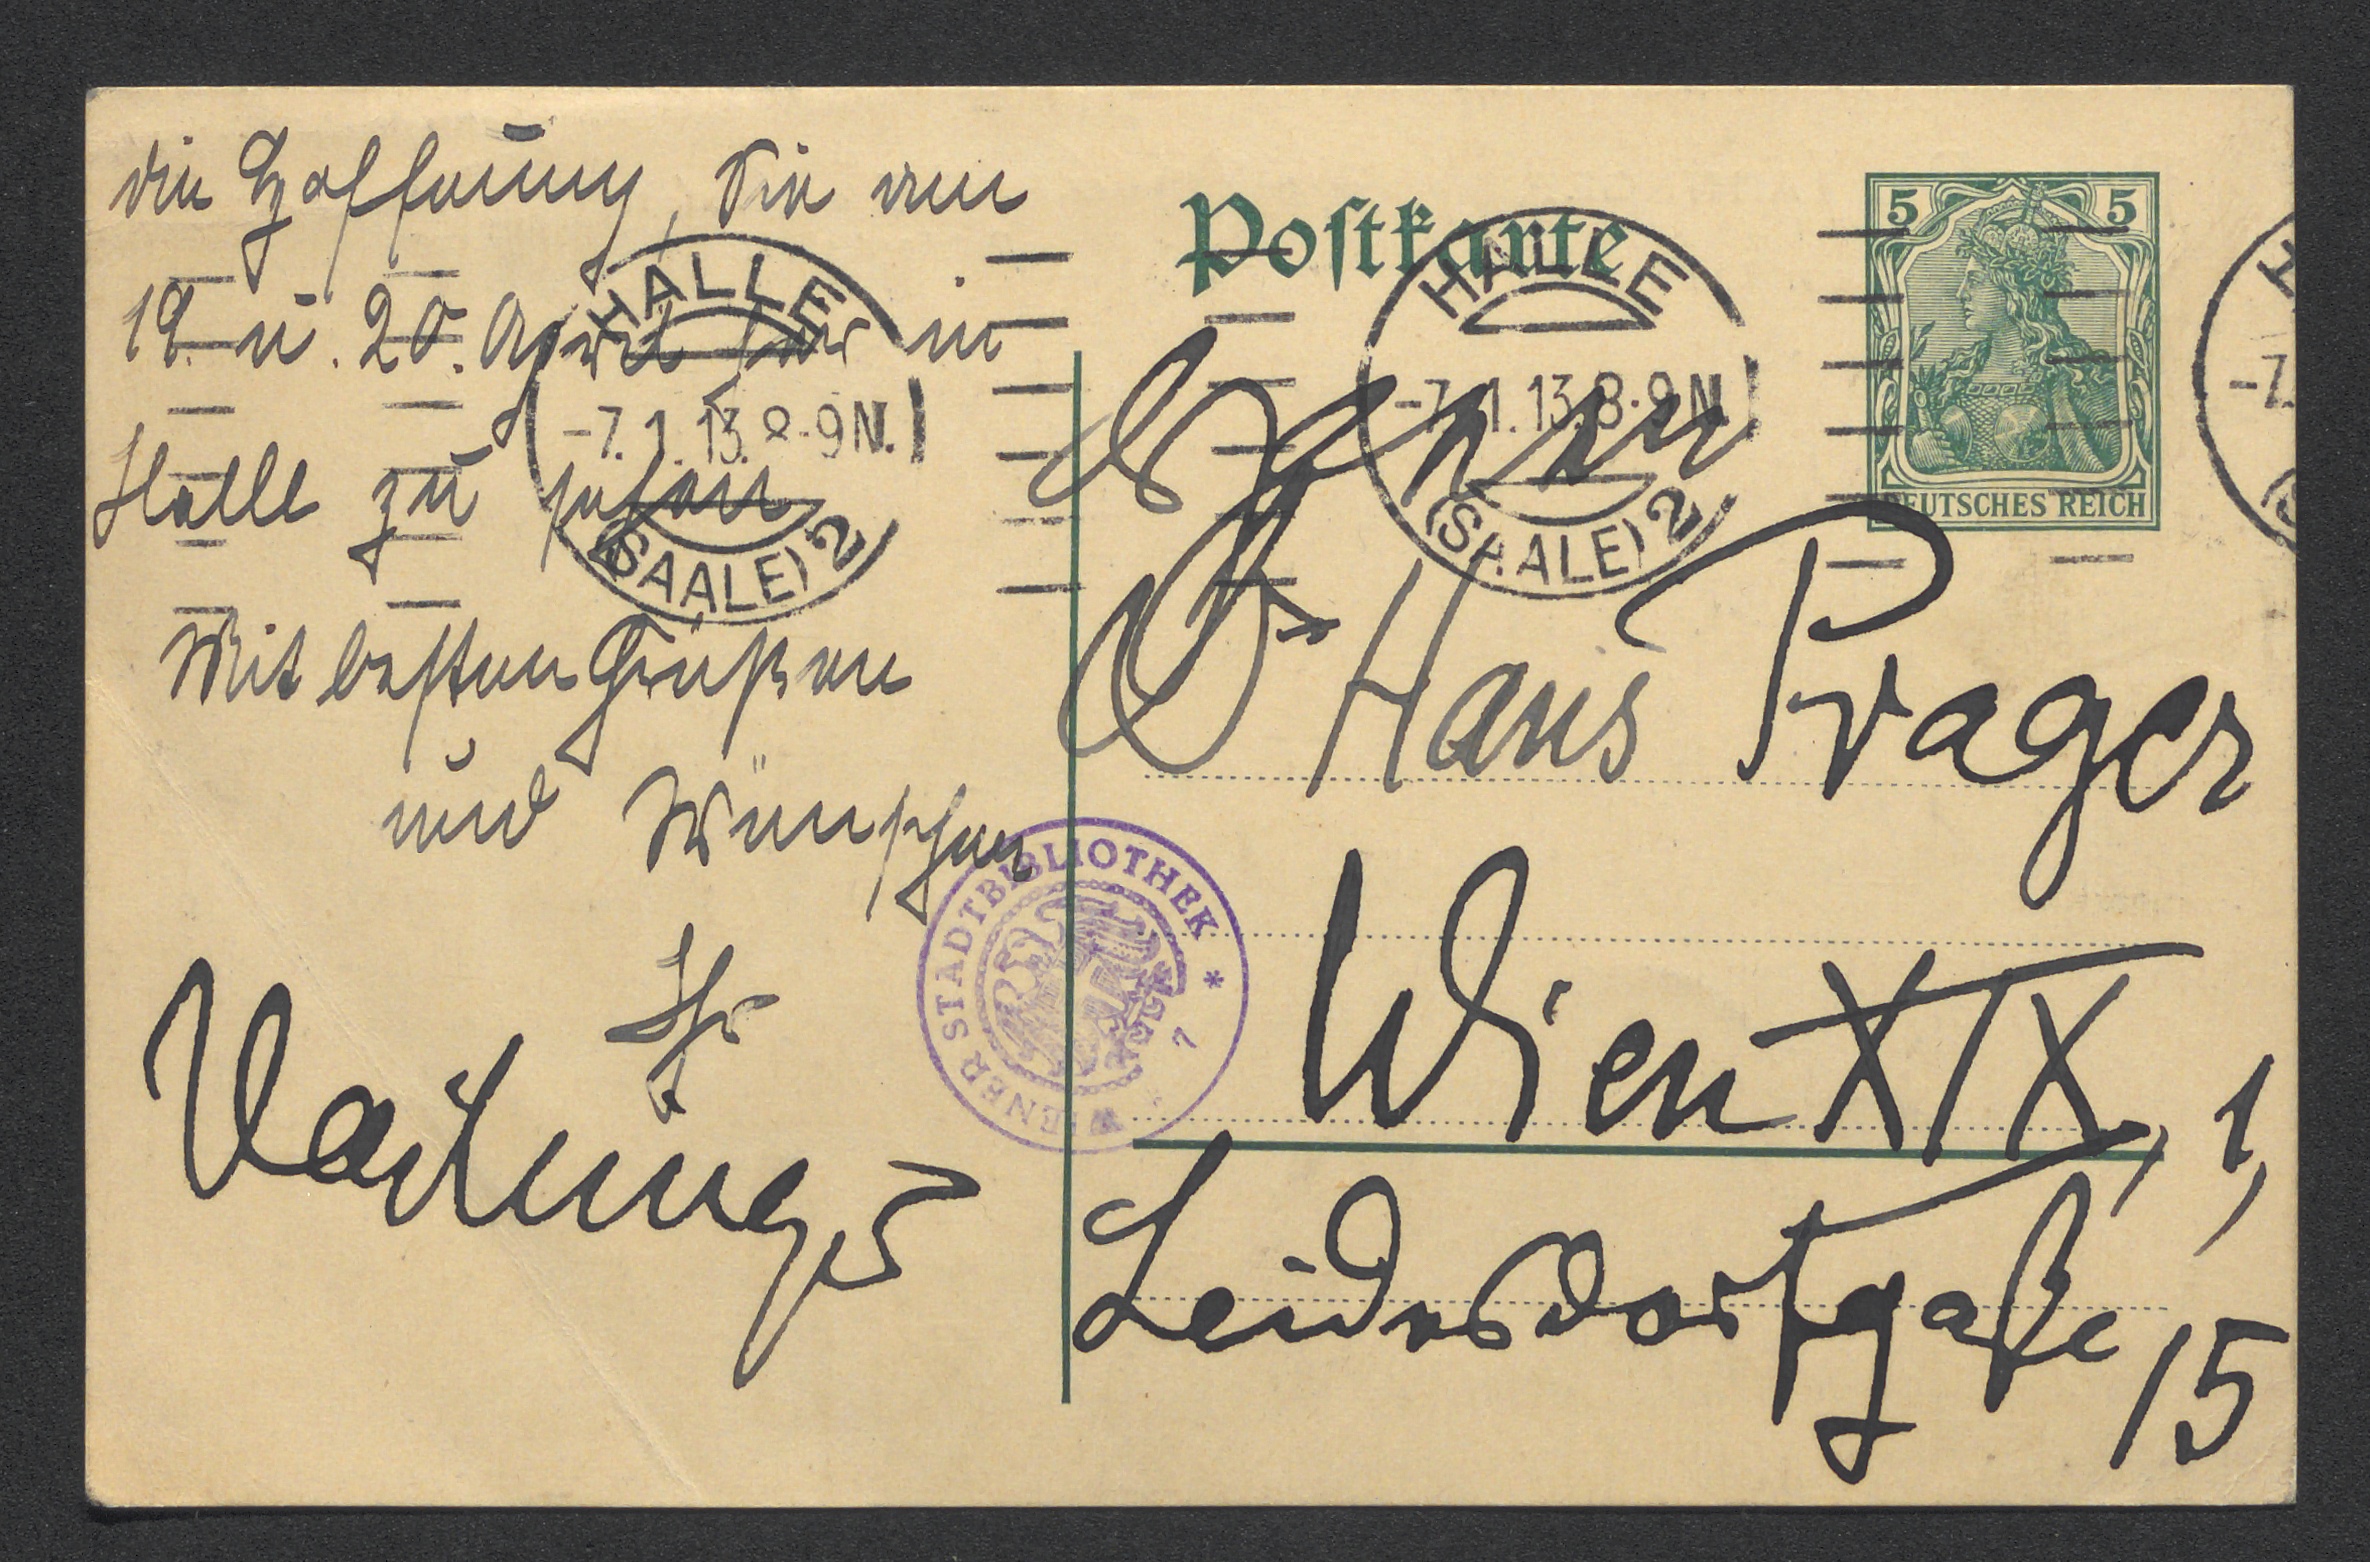 die Hoffnung, Sie am
19. u. 20. April hier in
Halle zu sehen
Mit besten Grüßen
und Wünschen
Ihr
Vaihinger
HALLE
-7.1.13. 8-9 N.
(SAALE) 2
Postkarte
HALLE
-7.1.13. 8-9 N.
(SAALE) 2
5 5
DEUTSCHES REICH
Herrn
Dr Hans Prager
Wien XIX, 1,
Leidesdorfgaße 15
WIENER STADTBIBLIOTHEK * 7